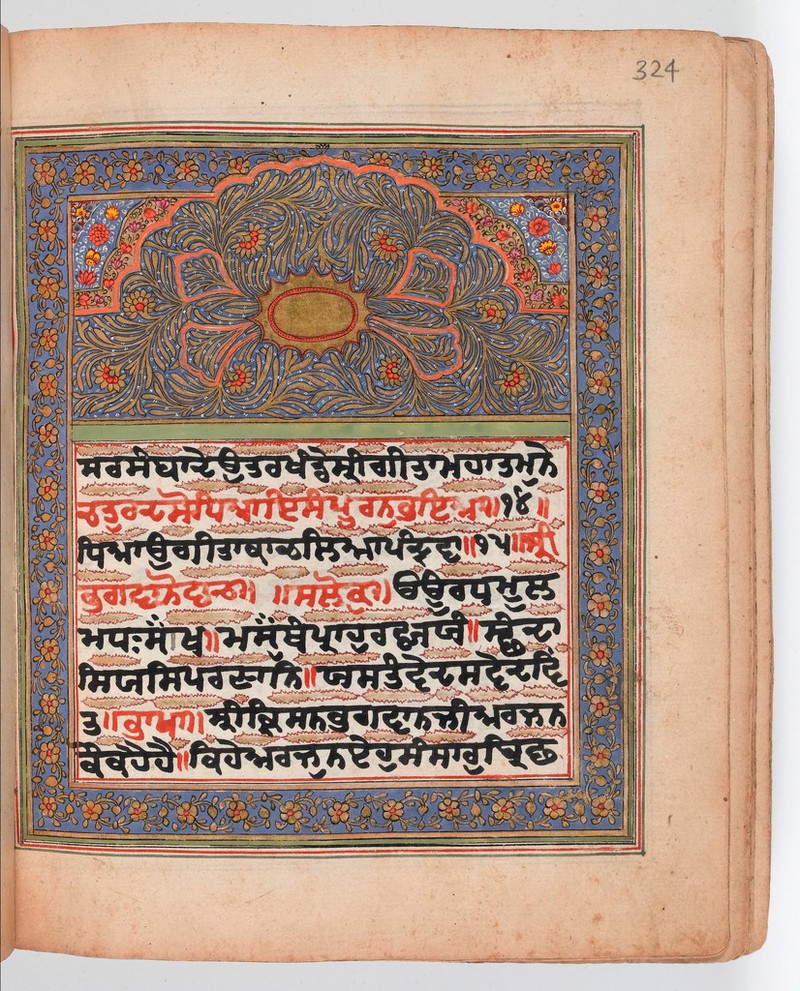 324
ਸਰਸੰਬਾਦੇਉਤਰਖੰਡੇਸ੍ਰੀਗੀਤਾਮਹਾਤਮੁਨੇ
ਚਤੁਰਦਸੋਧਿਆਇਸੰਪੂਰਨਭਇਆ॥੧੪॥
ਧਿਆਉਗੀਤਾਕਾਚਲਿਆਪੰਦ੍ਰਵਾ॥੧੫॥ਸ੍ਰੀ
ਭਗਵਾਨੋਵਾਚ॥ ॥ਸਲੋਕ॥ਉਰਧਮੂਲ
ਮਧਃਸਾਂਖ॥
ਸਿਯਸਿਪਰਣਾਨਿ॥ਯਸਤੰਵੇਦਸਵੇਦਵਿ
ਤ॥ਭਾਖਾ॥ਸ੍ਰੀਕ੍ਰਿਸਨਭਗਵਾਨਜੀਅਰਜਨ
ਕੋਕਹੈਹੈ॥ਕਿਹੇਅਰਜੁਨਏਹੁਸੰਸਾਰੁਬ੍ਰਿਛ